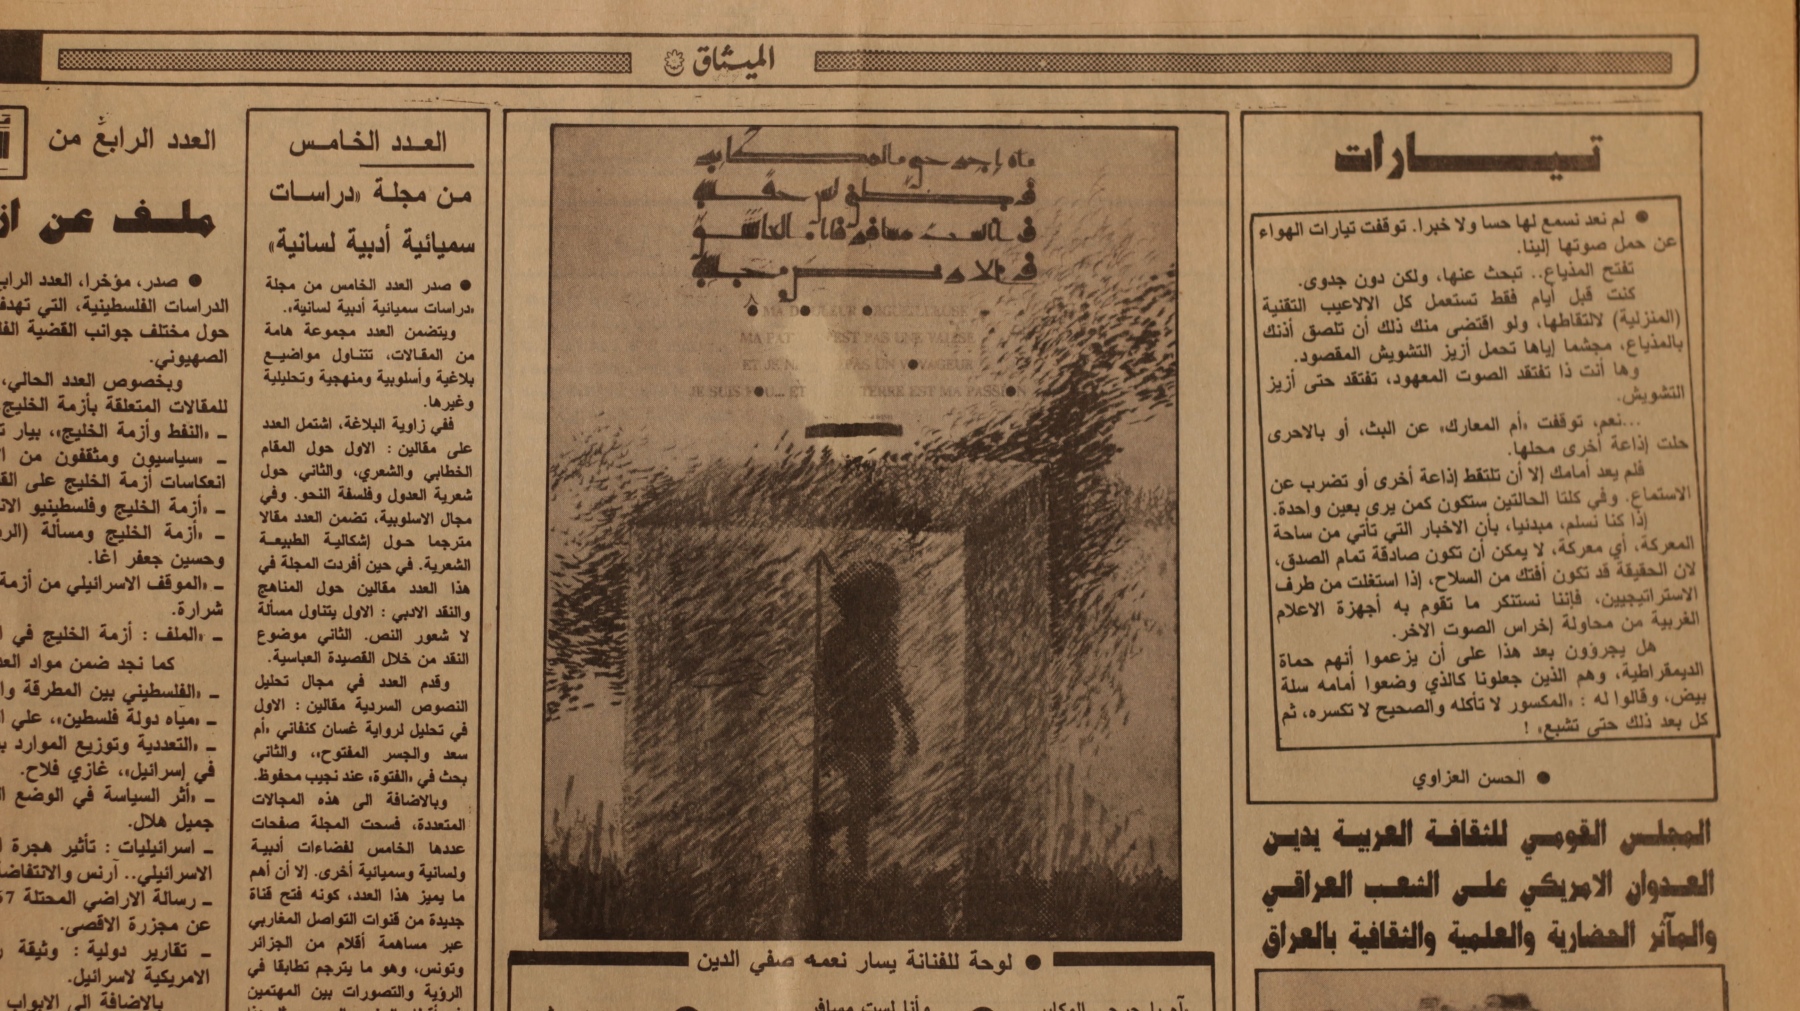 الميثاق
تيارات
● لم نعد نسمع لها حسا ولا خبرا. توقفت تيارات الهواء
عن حمل صوتها إلينا.
تفتح المذياع.. تبحث عنها، ولكن دون جدوى.
كنت قبل أيام فقط تستعمل كل الالاعيب التقنية
(المنزلية) لالتقاطها، ولو اقتضى منك ذلك أن تلصق أذنك
بالمذياع، مجشما إياها تحمل أزيز التشويش المقصود.
وها أنت ذا تفتقد الصوت المعهود، تفتقد حتى أزيز
التشويش.
...نعم، توقفت «أم المعارك» عن البث، أو بالاحرى
حلت إذاعة أخرى محلها.
فلم يعد أمامك إلا أن تلتقط إذاعة أخرى أو تضرب عن
الاستماع. وفي كلتا الحالتين ستكون كمن يرى بعين واحدة.
إذا كنا نسلم، مبدئيا، بأن الاخبار التي تأتي من ساحة
المعركة، أي معركة، لا يمكن أن تكون صادقة تمام الصدق،
لان الحقيقة قد تكون أفتك من السلاح، إذا استغلت من طرف
الاستراتيجيين، فإننا نستنكر ما تقوم به أجهزة الاعلام
الغربية من محاولة إخراس الصوت الاخر.
هل يجرؤون بعد هذا على أن يزعموا أنهم حماة
الديمقراطية، وهم الذين جعلونا كالذي وضعوا أمامه سلة
بيض، وقالوا له : «المكسور لا تأكله والصحيح لا تكسره، ثم
كل بعد ذلك حتى تشبع» !
● الحسن العزاوي
المجلس القومي للثقافة العربية يدين
العدوان الامريكي على الشعب العراقي
والمآثر الحضارية والعلمية والثقافية بالعراق
MA DOULEUR ORGUEILLEUSE
MA PAT EST PAS UNE VALISE
ET JE N PAS UN VOYAGEUR
JE SUIS FOU... ET TERRE EST MA PASSION
● لوحة للفنانة يسار نعمه صفي الدين
وأنا لست مسافر
العدد الخامس
من مجلة «دراسات
سميائية أدبية لسانية»
● صدر العدد الخامس من مجلة
«دراسات سميائية أدبية لسانية».
ويتضمن العدد مجموعة هامة
من المقالات، تتناول مواضيع
بلاغية وأسلوبية ومنهجية وتحليلية
وغيرها.
ففي زاوية البلاغة، اشتمل العدد
على مقالين : الاول حول المقام
الخطابي والشعري، والثاني حول
شعرية العدول وفلسفة النحو. وفي
مجال الاسلوبية، تضمن العدد مقالا
مترجما حول إشكالية الطبيعة
الشعرية. في حين أفردت المجلة في
هذا العدد مقالين حول المناهج
والنقد الادبي : الاول يتناول مسألة
لا شعور النص. الثاني موضوع
النقد من خلال القصيدة العباسية.
وقدم العدد في مجال تحليل
النصوص السردية مقالين : الاول
في تحليل لرواية غسان كنفاني «أم
سعد والجسر المفتوح»، والثاني
بحث في «الفتوة» عند نجيب محفوظ.
وبالاضافة الى هذه المجالات
المتعددة، فسحت المجلة صفحات
عددها الخامس لفضاءات أدبية
ولسانية وسميائية أخرى. إلا أن أهم
ما يميز هذا العدد، كونه فتح قناة
جديدة من قنوات التواصل المغاربي
عبر مساهمة أقلام من الجزائر
وتونس، وهو ما يترجم تطابقا في
الرؤية والتصورات بين المهتمين
العدد الرابع من
ملف عن
● صدر، مؤخرا، العدد الرابع
الدراسات الفلسطينية، التي تهدف
حول مختلف جوانب القضية
الصهيوني.
وبخصوص العدد الحالي،
للمقالات المتعلقة بأزمة الخليج
ـ «النفط وأزمة الخليج»، بيار
ـ «سياسيون ومثقفون من
انعكاسات أزمة الخليج على
ـ «أزمة الخليج وفلسطينيو
ـ «أزمة الخليج ومسألة
وحسين جعفر آغا.
ـ «الموقف الاسرائيلي من أزمة
شرارة.
ـ «الملف : أزمة الخليج في
كما نجد ضمن مواد
ـ «الفلسطيني بين المطرقة
ـ «مياه دولة فلسطين»، علي
ـ «التعددية وتوزيع الموارد
في إسرائيل»، غازي فلاح.
ـ «أثر السياسة في الوضع
جميل هلال.
ـ اسرائيليات : تأثير هجرة
الاسرائيلي.. آرنس والانتفاضة
ـ رسالة الاراضي المحتلة
عن مجزرة الاقصى.
ـ تقارير دولية : وثيقة
الامريكية لاسرائيل.
بالاضافة الى الابواب